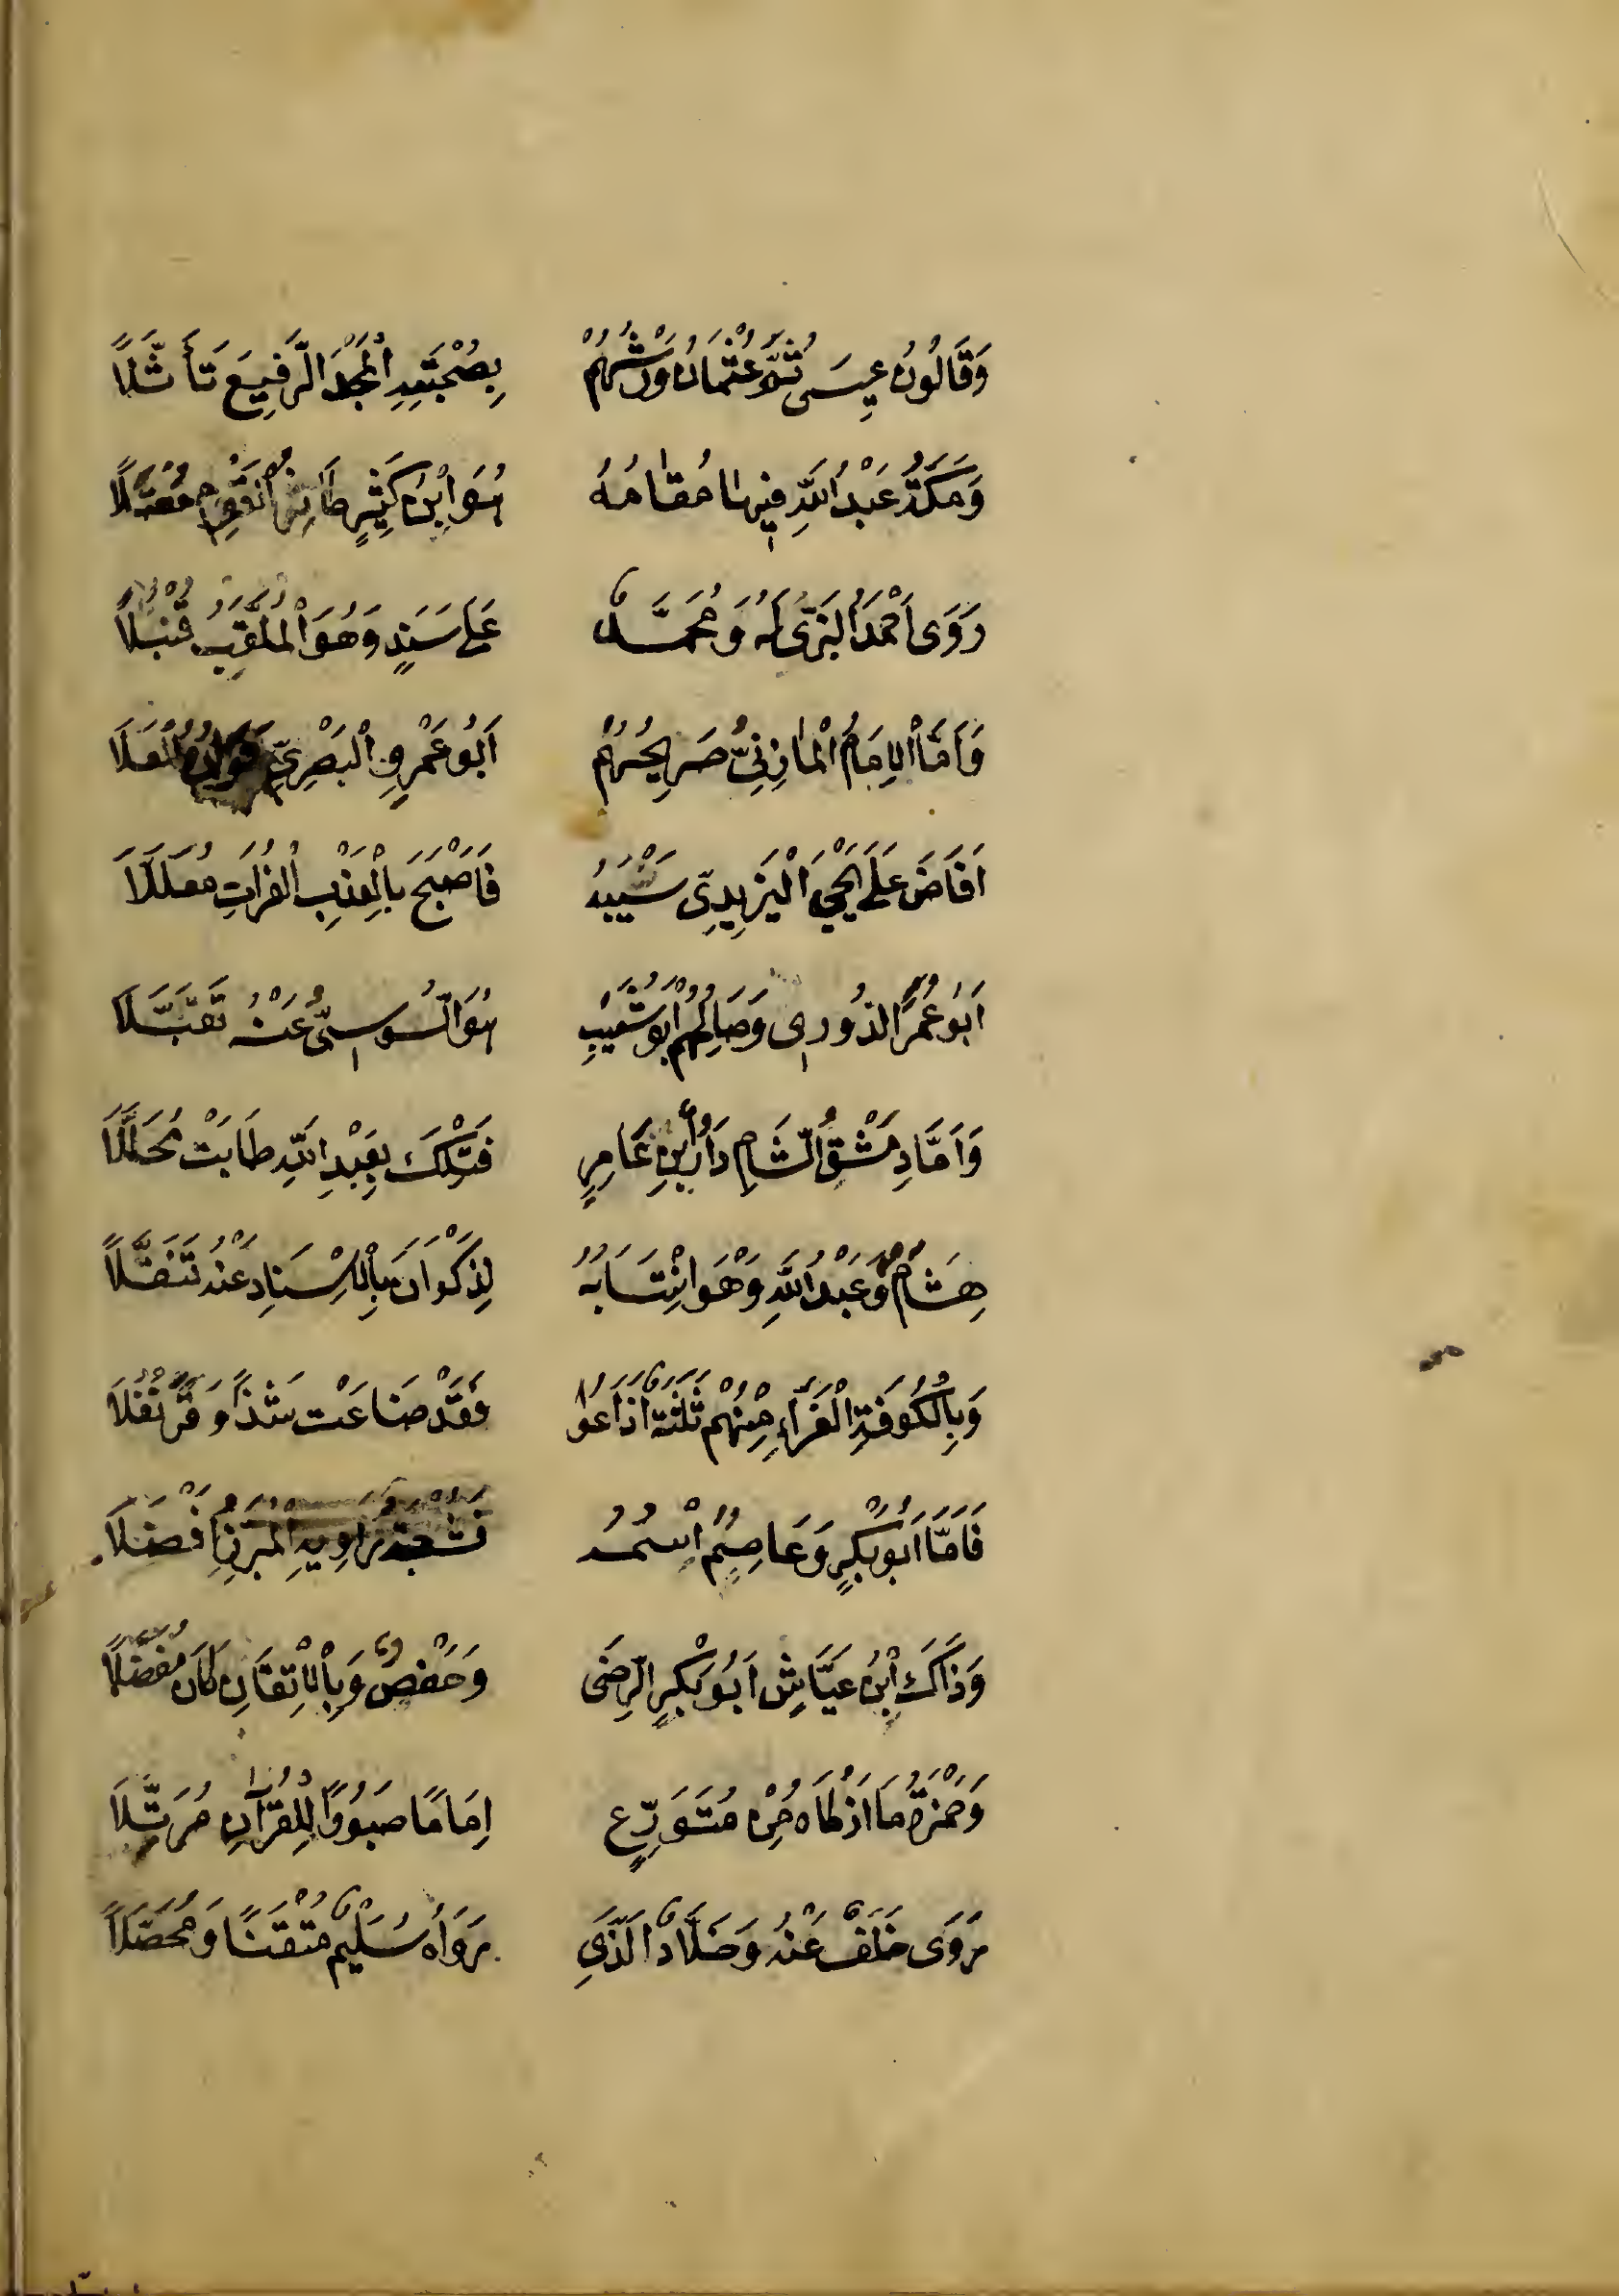 وَقَالُونُ عِيسَى ثُمَّ عُثْمَانُ وَرْشُهُمْ بِصُحْبَتِهِ الْمَجْدَ الرَّفِيعَ تَأَثَّلَا
وَمَكَّةُ عَبْدُ اللَّهِ فِيهَا مُقَامُهُ هُوَ ابْنُ كَثِيرٍ كَاثِرُ الْقَوْمِ مُعْتَلَا
رَوَى أَحْمَدُ الْبَزِّي لَهُ وَمُحَمَّدٌ عَلَى سَنَدٍ وَهُوَ الْمُلَقَّبُ قُنْبُلًا
وَأَمَّا الْإِمَامُ الْمَازِنِيُّ صَرِيحُهُمْ أَبُو عَمْرٍو الْبَصْرِيِّ الْعَلَا
أَفَاضَ عَلَى يَحْيَى الْيَزِيدِيِّ سَيْبَهُ فَأَصْبَحَ بِالْعَذْبِ الْفُرَاتِ مُعَلَّلَا
أَبُو عُمَرَ الدُّورِي وَصَالِحُهُمْ أَبُو شُعَيْبٍ هُوَ السُّوسِيُّ عَنْهُ تَقَبَّلَا
وَأَمَّا دِمَشْقُ الشَّامِ دَارُ ابْنِ عَامِرٍ فَتِلْكَ بِعَبْدِ اللَّهِ طَابَتْ مُحَلَّلَا
هِشَامٌ وَعَبْدُ اللَّهِ وَهْوَ انْتِسَابُهُ لِذَكْوَانَ بِالْإِسْنَادِ عَنْهُ تَنَقَّلَا
وَبِالْكُوفَةِ الْغَرَّاءِ مِنْهُمْ ثَلَثَةٌ أَذَاعُوا فَقَدْ ضَاعَتْ شَذًا وَقَرَنْفُلَا
فَأَمَّا أَبُو بَكْرٍ وَعَاصِمٌ اسْمُهُ فَشُعْبَةُ رَاوِيهِ الْمُبَرِّزُ أَفْضَلَا
وَذَاكَ ابْنُ عَيَّاشٍ أَبُو بَكْرٍ الرِّضَى وَحَفْصٌ وَبِالْإِتْقَانِ كَانَ مُفَضَّلًا
وَحَمْزَةُ مَا أَزْكَاهُ مِنْ مُتَوَرِّعٍ إِمَامًا صَبُورًا لِلْقُرْآنِ مُرَتِّلَا
رَوَى خَلَفٌ عَنْهُ وَخَلَّادٌ الَّذِي رَوَاهُ سُلَيْمٌ مُتْقَنًا وَمُحَصَّلًا